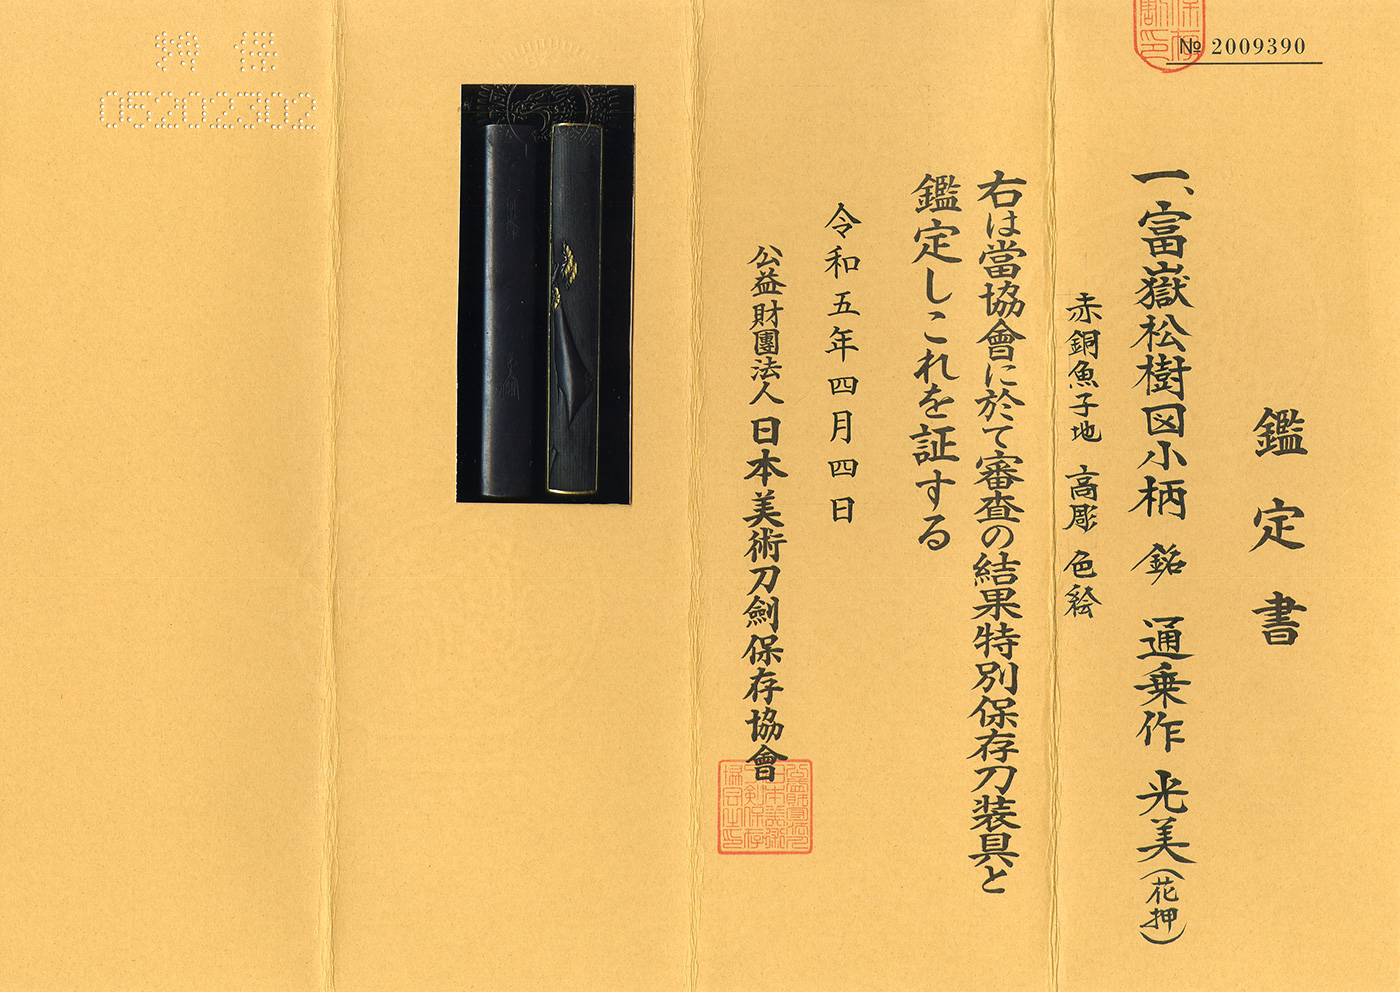 № 2009390
鑑定書
一、富嶽松樹図小柄 銘 通乗作 光美(花押)
赤銅魚子地 高彫 色絵
右は當協會に於て審査の結果特別保存刀装具と
鑑定しこれを証する
令和五年四月四日
公益財團法人 日本美術刀劍保存協會
05202302